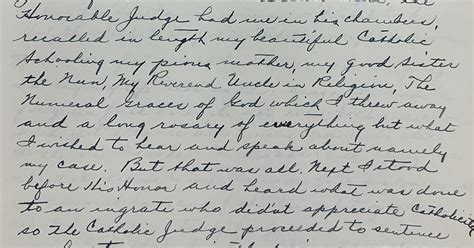 Honorable Judge had me in his chambers,
recalled in length my beautiful Catholic
Schooling my pious mother, my good Sister
the Nun, My Reverend Uncle in Religion, The
Numeral Graces of God which I threw away
and a long rosary of everything but what
I wished to hear and speak about namely
my case. But that was all. Next I stood
before His Honor and heard what was done
to an ingrate who didn't appreciate Catholicity
so The Catholic Judge proceeded to sentence